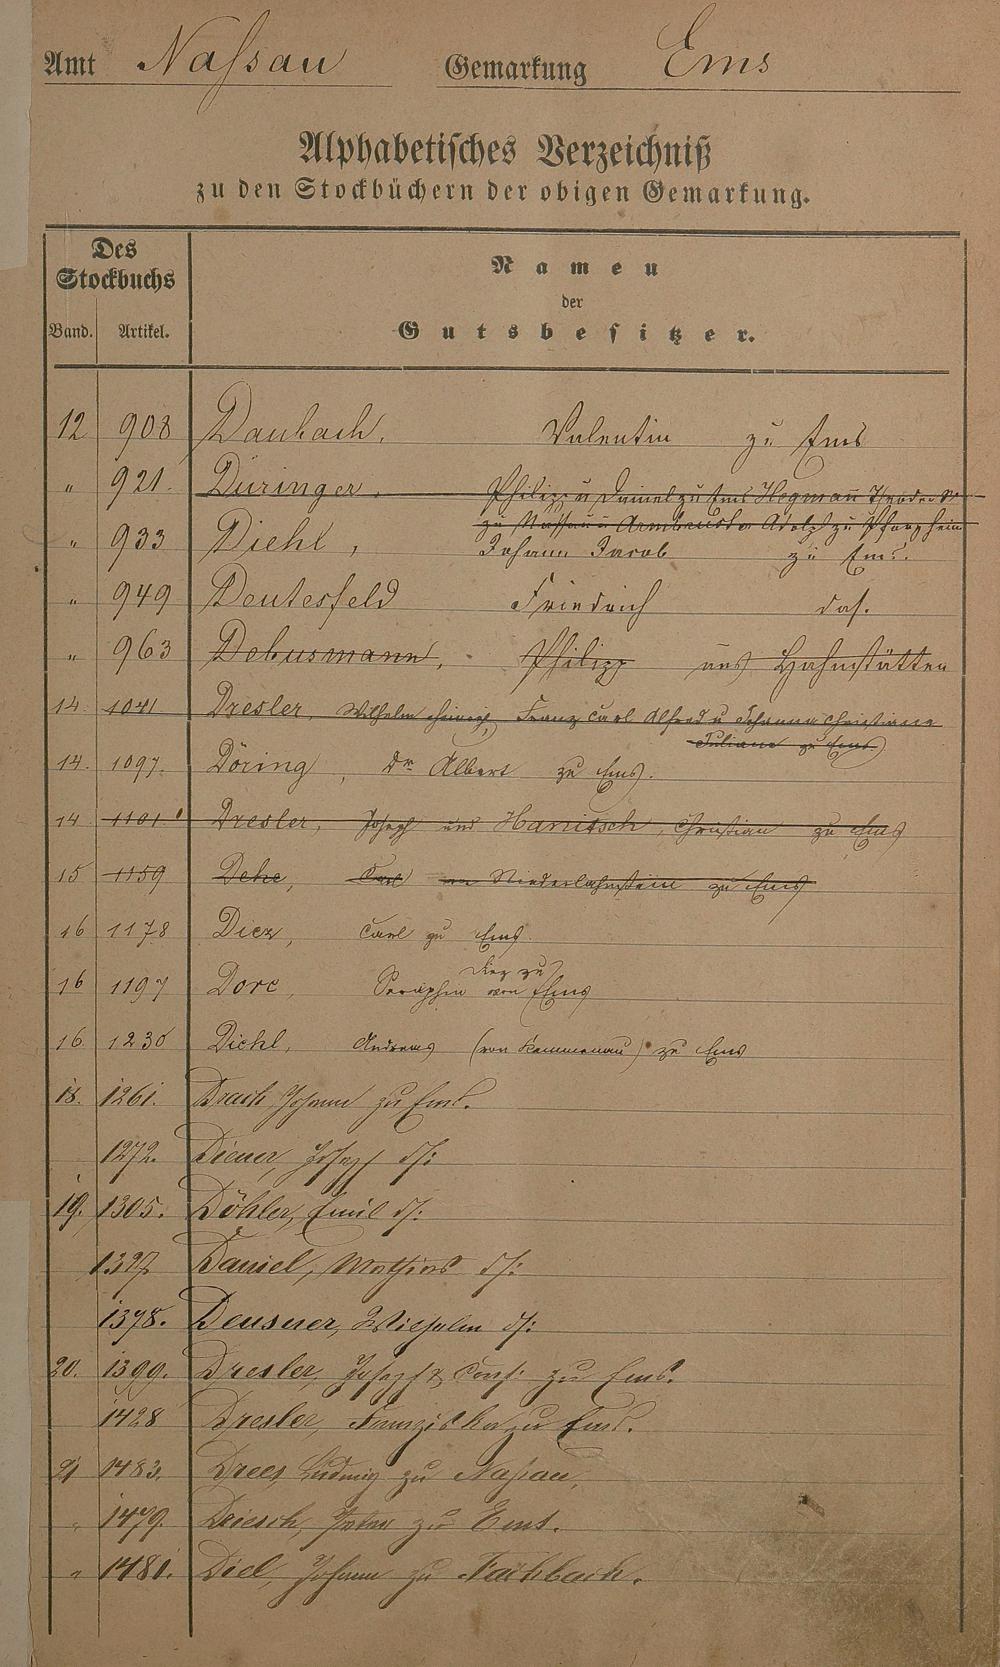 Amt Naſsau Gemarkung Ems
Alphabetiſches Verzeichniß
zu den Stockbüchern der obigen Gemarkung.
Des
Stockbuchs
Band. Artikel.
Namen
der
Gutsbeſitzer.
12 908 Daubach, Valentin zu Ems
" 921. Düringer, Philipp u Daniel zu Ems Hegmañ Theodor
zu Naſsau u Armbruster Adolph zu Pforzheim
" 933 Diehl, Johann Jacob zu Ems.
" 949 Deutesfeld Friedrich daſ.
" 963 Debusmann, Philipp aus Hahnstätten
14 1041 Dresler, Wilhelm Heinrich, Franz Carl Alfred u Johanna Christiane
Juliane zu Ems
14. 1097. Döring, Dr Albert zu Ems.
14 1101 Dresler, Joseph und Hanitsch, Christian zu Ems
15 1159 Dehe, Carl Niederlahnstein zu Ems
16 1178 Diez, Carl zu Ems.
16 1197 Dore, Seraphin von Ems
Diez zu
16. 1230 Diehl, Andreas (von Kemmenau) zu Ems
18. 1261. Drach Johann zu Ems.
1272. Diener, Joseph d/:
19. 1305. Döhler, Emil d/:
1327 Daniel, Mathias d/:
1378. Deusner, Wilhelm d/:
20. 1399. Dresler, Joseph & Cons: zu Ems.
1428 Dresler, Franziska zu Ems.
21 1483. Drees Ludwig zu Naſsau,
" 1479. Driesch, Peter zu Ems.
" 1481. Diel, Johann zu Fachbach.